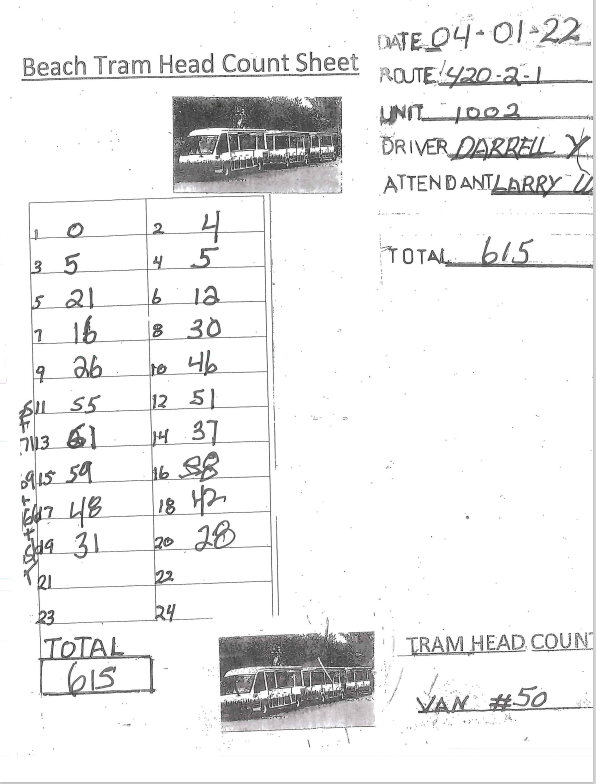 Beach Tram Head Count Sheet
DATE 04-01-22
ROUTE 420-2-1
UNIT 1002
DRIVER DARRELL Y
ATTENDANT LARRY W
TOTAL 615
1 0 2 4
3 5 4 5
5 21 6 12
7 16 8 30
9 26 10 46
11 55 12 51
13 61 14 37
15 59 16 38
17 48 18 42
19 31 20 28
21 22
23 24
TOTAL
615
TRAM HEAD COUN
VAN #50